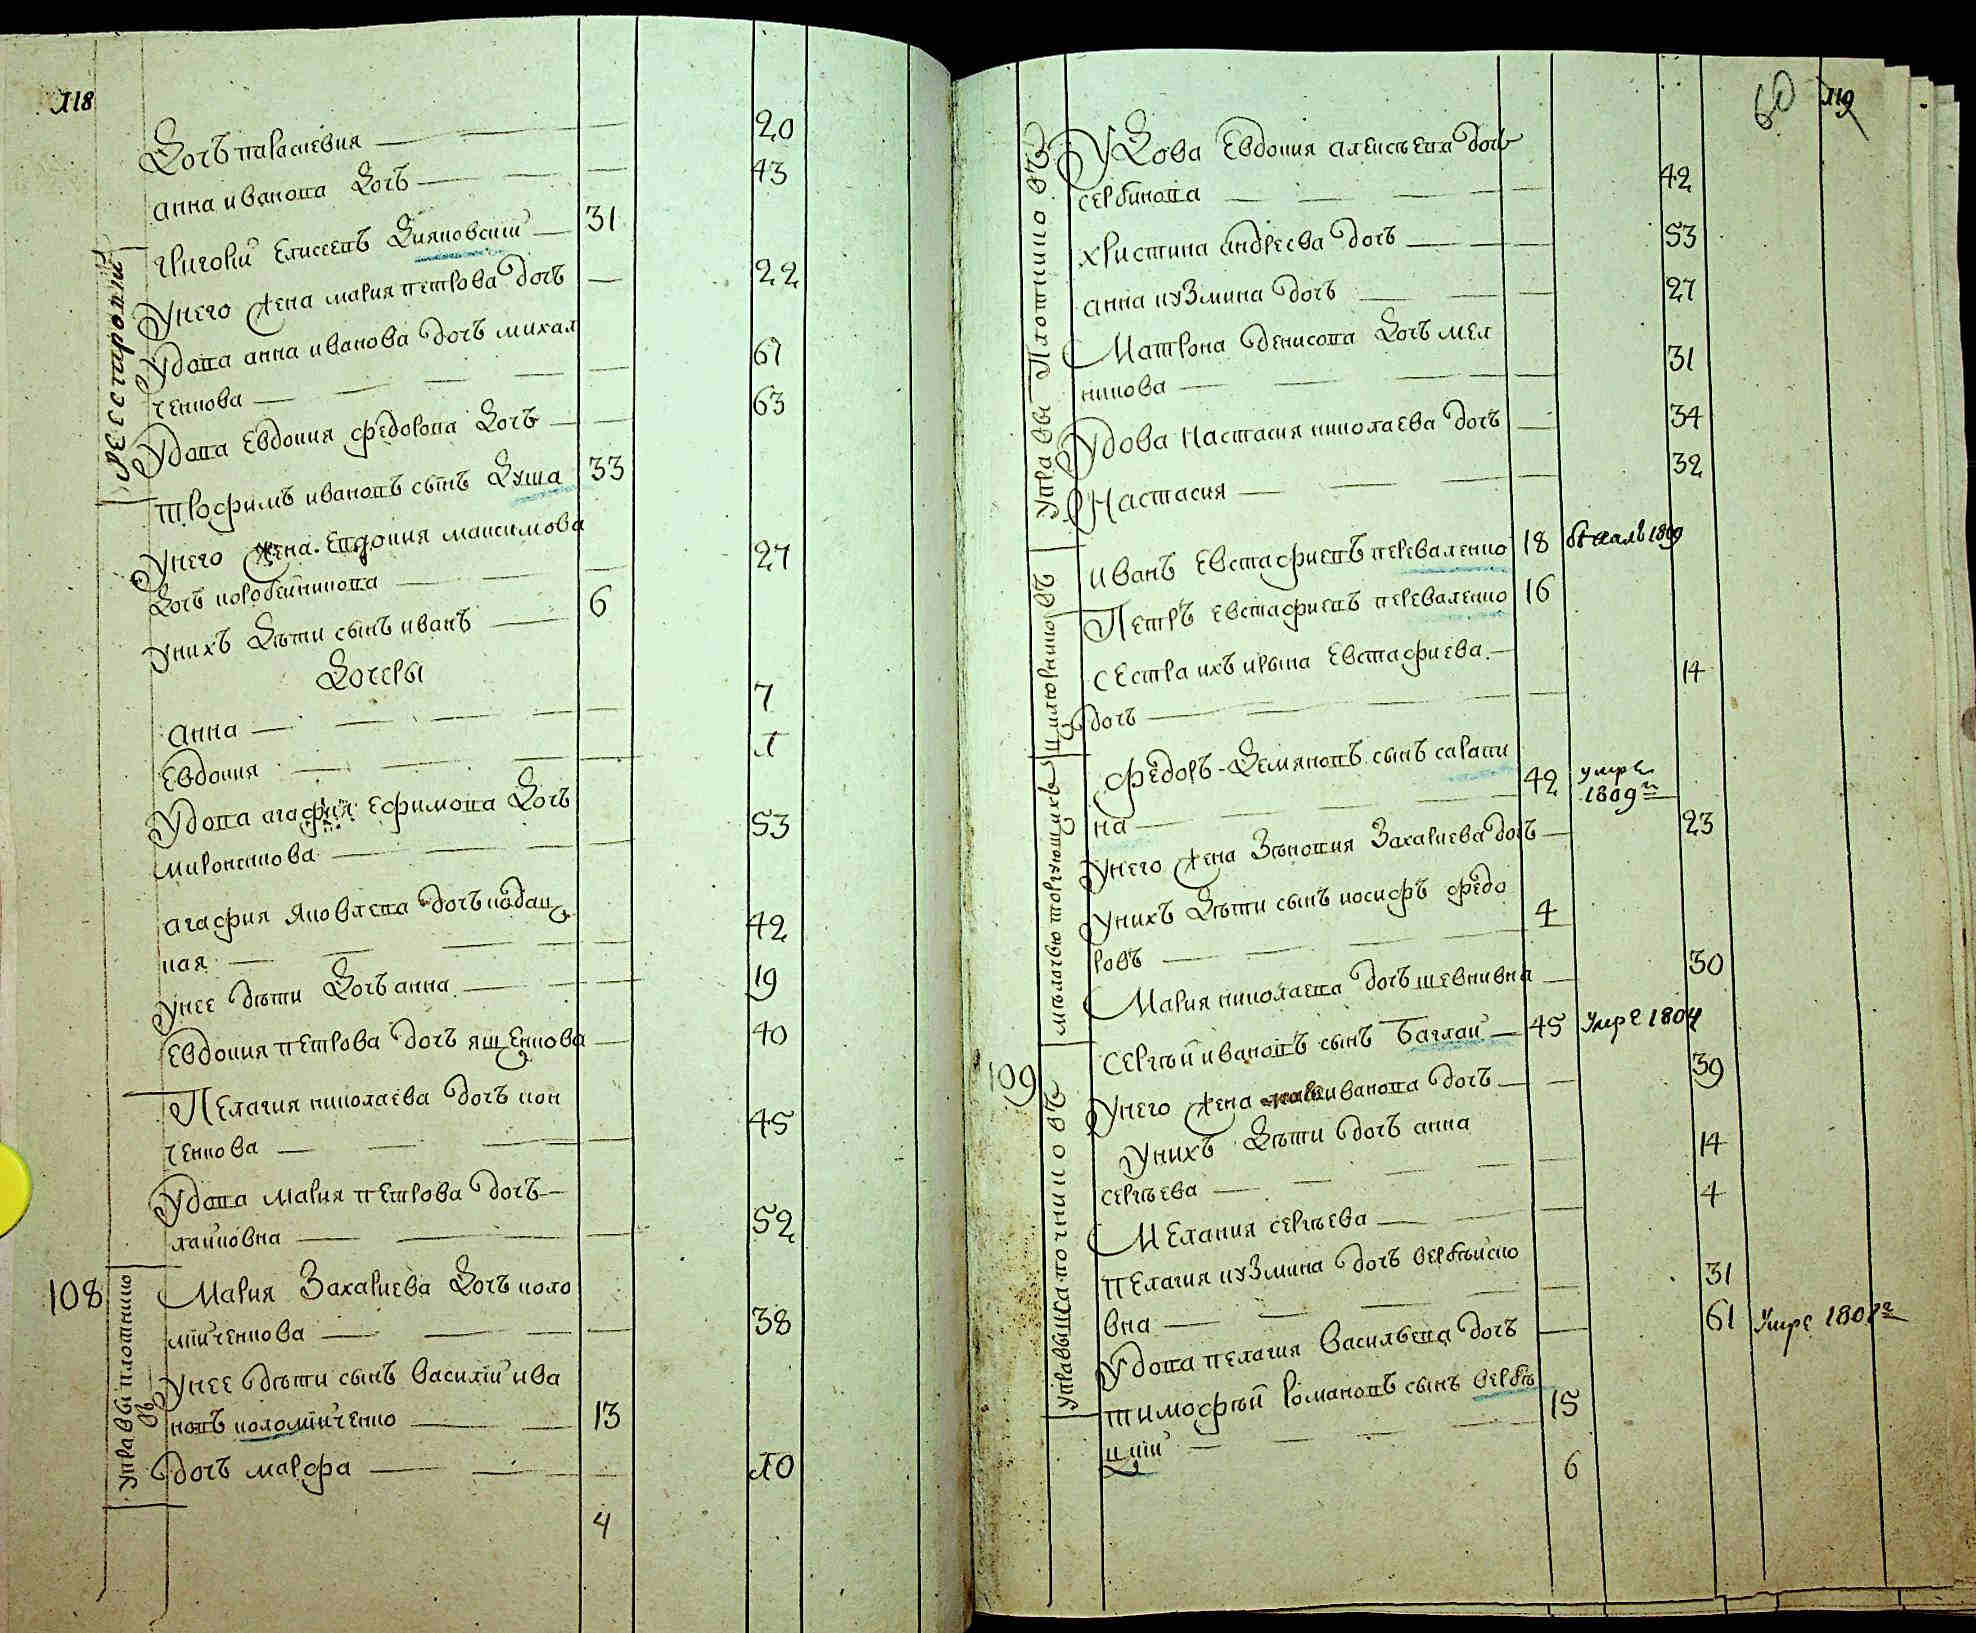 118
Дочъ параскевия — 20
анна иванова Дочъ — 43
Реестровии
григории Елисеевъ Дияновскии — 31
Унего жена мария петрова дочъ — 22
Удова анна иванова дочъ михал
ченкова — 61
Удова Евдокия федорова Дочъ — 63
трофимъ ивановъ сынъ Куша 33
Унего жена Евдокия максимова
Дочъ коробейникова — 27
Унихъ Дѣти сынъ иванъ — 6
Дочеры
анна — 7
Евдокия — 1
Удова агафия Ефимова Дочъ
миронснкова — 53
агафия Яковлева дочъ кобац
кая — 42
Унее дѣти Дочъ анна — 19
Евдокия петрова дочъ ященкова — 40
Пелагия николаева дочъ кон
ченкова — 45
Удова мария петрова дочъ —
лаиковна — 52
108
Управы плотнико
въ
Мария Захариева Дочъ коло
мийченкова — 38
Унее дѣти сынъ василий ива
новъ коломийченко — 13
дочъ марфа — 10
4
60 119
Управы Плотнико въ
УДова Евдокия алексѣева дочъ
сербинова — 42
христина андреева дочъ — 53
анна кузмина дочъ — 27
Матрона денисова Дочъ мел
никова — 31
Удова Настасия николаева дочъ — 34
Настасия — 32
цилюрниковъ
иванъ Евстафиевъ переваленко 18 бежалъ 1809
Петръ Евстафиевъ переваленко 16
сЕстра ихъ ирына Евстафиева —
дочъ — 14
мѣлочью торгующихъ
федоръ Демяновъ сынъ сарапи
на — 42 умре 1809го
Унего жена Зѣновия Захариева дочъ — 23
Унихъ Дѣти сынъ иосифъ федо
ровъ — 4
Мария николаева дочъ шевкивна — 30
109
Управы шапочниковъ
Сергѣй ивановъ сынъ Баглаи — 45 Умре 1804
Унего жена иванова дочъ — 39
Унихъ Дѣти дочъ анна
сергѣева — 14
Мелания сергѣева — 4
пелагия кузмина дочъ вербѣиско
вна — 31
Удова пелагия васильева дочъ — 61 Умре
тимофѣй романовъ сынъ вербѣ
цкии — 15
6